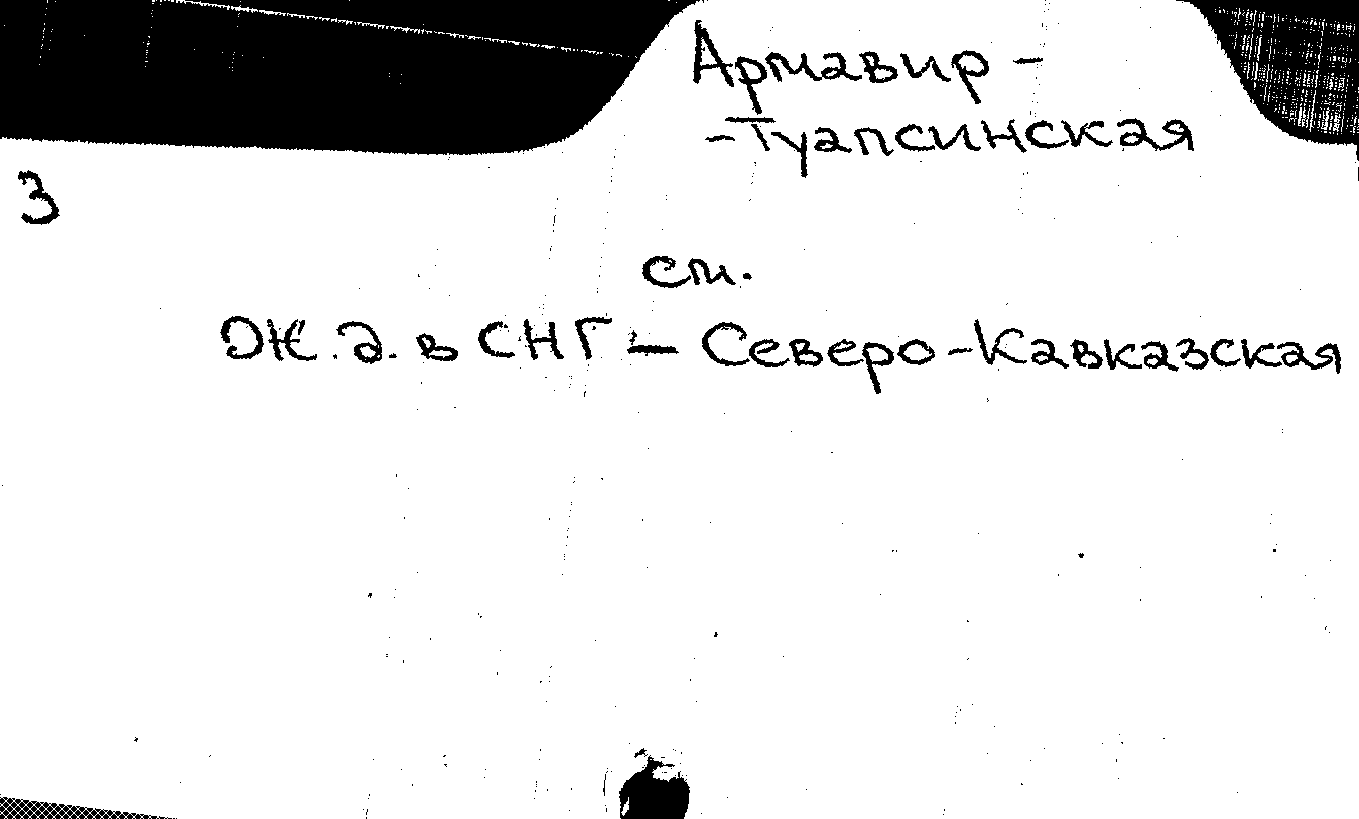 Армавир -
- Туапсинская
3
см.
Ж.д. в СНГ — Северо-Кавказская